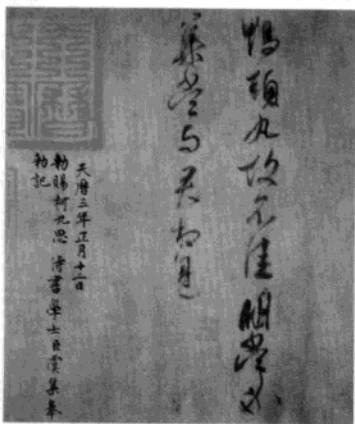 鴨頭丸故不佳明當必
集當與君相見
天曆三年正月十二日
勅賜柯九思 侍書學士臣虞集奉
勅記